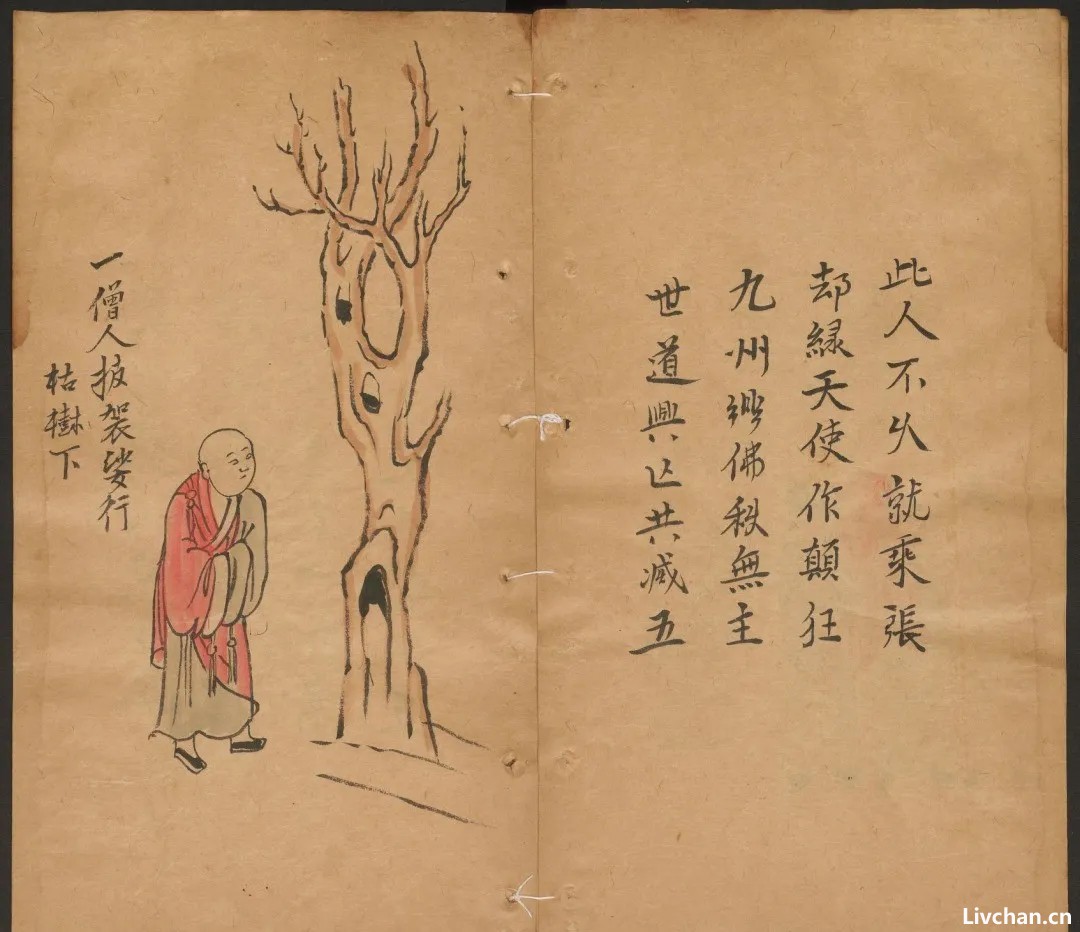 此人不乆就乘張
却縁天使作顛狂
九州佛秩無主
世道興亾共减五
一僧人披袈裟行
枯樹下
Livchan.cn